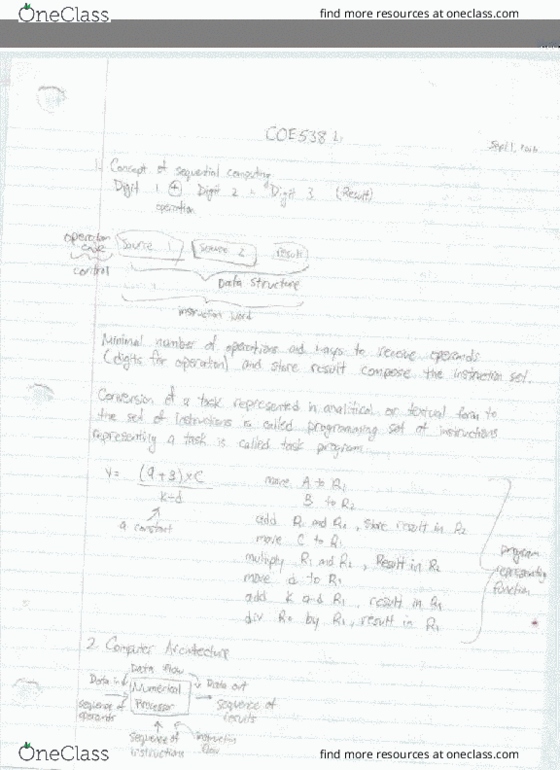 OneClass find more resources at oneclass.com
COE538 1.
Sept 1, 2016
1. Concept of sequential computing
Digit 1 ⊕ Digit 2 = Digit 3 (Result)
operation
operation code Source 1 Source 2 result
control
Data Structure
instruction word
Minimal number of operations and ways to receive operands
(digits for operation) and store result compose the instruction set.
Conversion of a task represented in analitical or textual form to
the set of instructions is called programming set of instructions
representing a task is called task program
Y = (A+B)×C
k+d
a constant
move A to R1
B to R2
add R1 and R2, store result in R2
move C to R1
multiply R1 and R2, Result in R2
move d to R1
add k and R1, result in R1
div R2 by R1, result in R1
program
representing
function
2. Computer Architecture
Data flow
Data in Numerical Data out
sequence of operands Processor sequence of results
sequence of instructions instruction flow
OneClass find more resources at oneclass.com